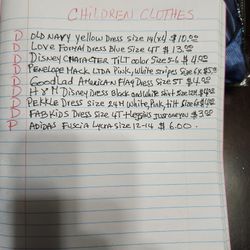 CHILDREN CLOTHES
D OLD NAVY Yellow Dress size 14(x4) $10.00
D LOVE FORMAL Dress Blue Size 4T $13.00
D DISNEY CHARACTER TILT color Size 5-6 $4.00
D PENELOPE MACK LTDA Pink, white stripes Size 6x $5.00
D GOODLAD AMERICAN FLAG Dress size 5T $4.00
D H&M Disney Dress Black and white shirt Size $4.00
D PEKKLE Dress size 24M White, Pink, tilt Size $4.00
D FABKIDS Dress size 4T-Leggins JUSTONEYOU $3.00
P ADIDAS Fuscia Lycra size 12-14 $6.00.